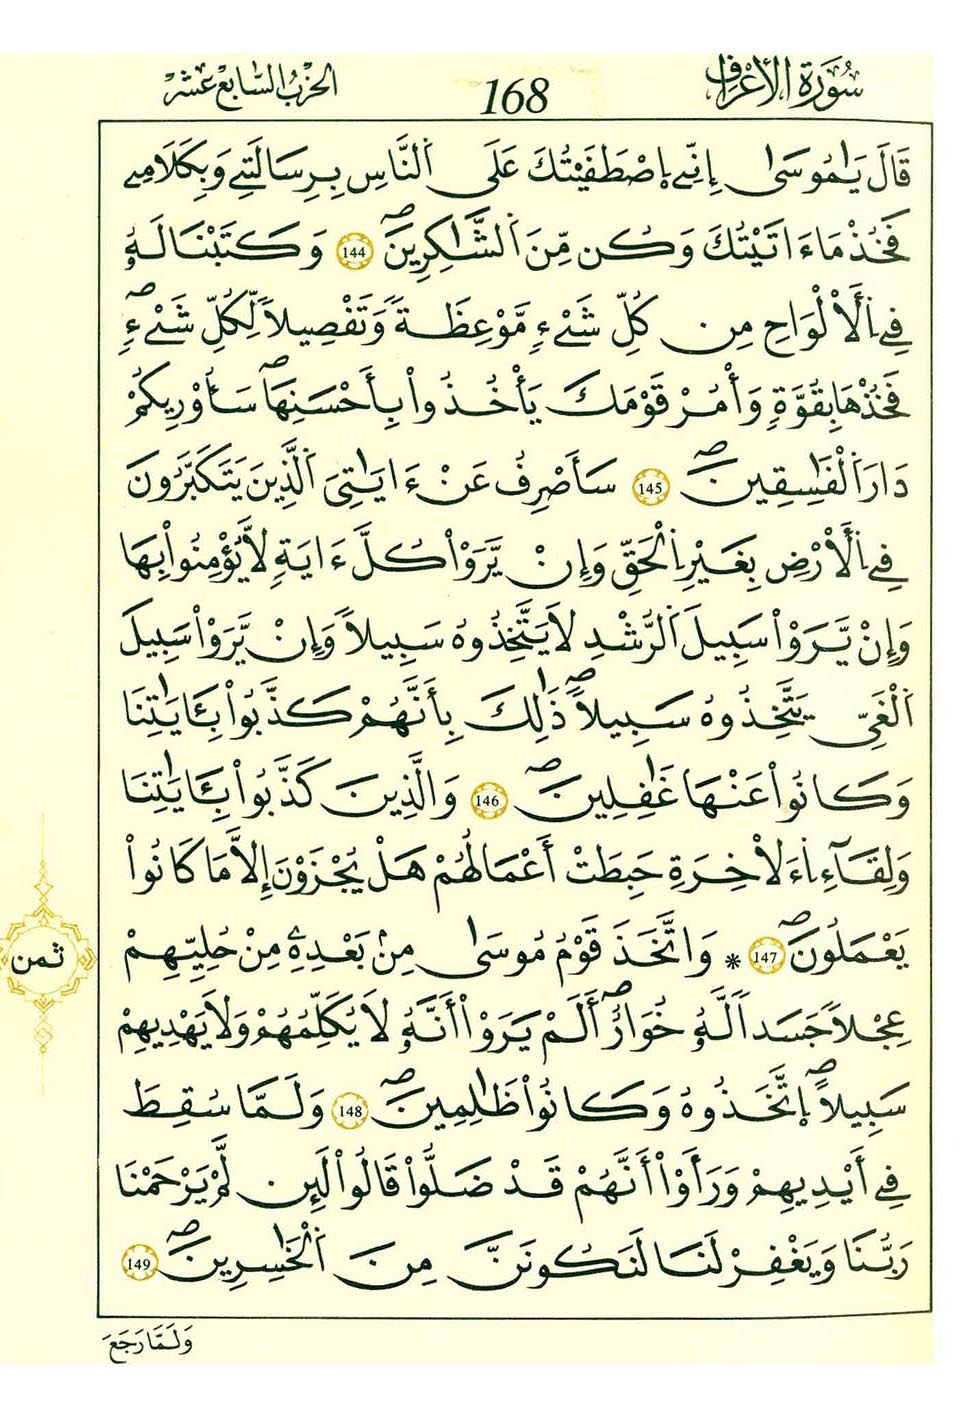 سُورَةُ الأَعْرَافِ
168
الحِزْبُ السَّابِعَ عَشَرَ
قَالَ يَٰمُوسَىٰ إِنِّے اِصْطَفَيْتُكَ عَلَى اَلنَّاسِ بِرِسَالَتِے وَبِكَلَٰمِے
فَخُذْ مَا ءَاتَيْتُكَ وَكُن مِّنَ اَلشَّٰكِرِينَۖ 144 وَكَتَبْنَا لَهُۥ
فِے اِلَالْوَاحِ مِن كُلِّ شَےْءٖ مَّوْعِظَةٗ وَتَفْصِيلاٗ لِّكُلِّ شَےْءٖۖ
فَخُذْهَا بِقُوَّةٖ وَأْمُرْ قَوْمَكَ يَأْخُذُواْ بِأَحْسَنِهَاۖ سَأُوْرِيكُمْ
دَارَ اَلْفَٰسِقِينَۖ 145 سَأَصْرِفُ عَنْ ءَايَٰتِيَ اَلذِينَ يَتَكَبَّرُونَ
فِے اِلَارْضِ بِغَيْرِ اِلْحَقِّ وَإِنْ يَّرَوْاْ كُلَّ ءَايَةٖ لَّا يُؤْمِنُواْ بِهَا
وَإِنْ يَّرَوْاْ سَبِيلَ اَلرُّشْدِ لَا يَتَّخِذُوهُ سَبِيلاٗ وَإِنْ يَّرَوْاْ سَبِيلَ
اَلْغَيِّ يَتَّخِذُوهُ سَبِيلاٗۖ ذَٰلِكَ بِأَنَّهُمْ كَذَّبُواْ بِـَٔايَٰتِنَا
وَكَانُواْ عَنْهَا غَٰفِلِينَۖ 146 وَالذِينَ كَذَّبُواْ بِـَٔايَٰتِنَا
وَلِقَآءِ اِءَلَاخِرَةِ حَبِطَتْ أَعْمَالُهُمْ هَلْ يُجْزَوْنَ إِلَّا مَا كَانُواْ
يَعْمَلُونَۖ 147 * وَاتَّخَذَ قَوْمُ مُوسَىٰ مِنۢ بَعْدِهِۦ مِنْ حُلِيِّهِمْ
عِجْلاٗ جَسَداٗ لَّهُۥ خُوَارٌۖ اَلَمْ يَرَوَاْ اَنَّهُۥ لَا يُكَلِّمُهُمْ وَلَا يَهْدِيهِمْ
سَبِيلاًۖ اِتَّخَذُوهُ وَكَانُواْ ظَٰلِمِينَۖ 148 وَلَمَّا سُقِطَ
فِے أَيْدِيهِمْ وَرَأَوَاْ اَنَّهُمْ قَدْ ضَلُّواْ قَالُواْ لَئِن لَّمْ يَرْحَمْنَا
رَبُّنَا وَيَغْفِرْ لَنَا لَنَكُونَنَّ مِنَ اَلْخَٰسِرِينَۖ 149
ثمن
وَلَمَّا رَجَعَ